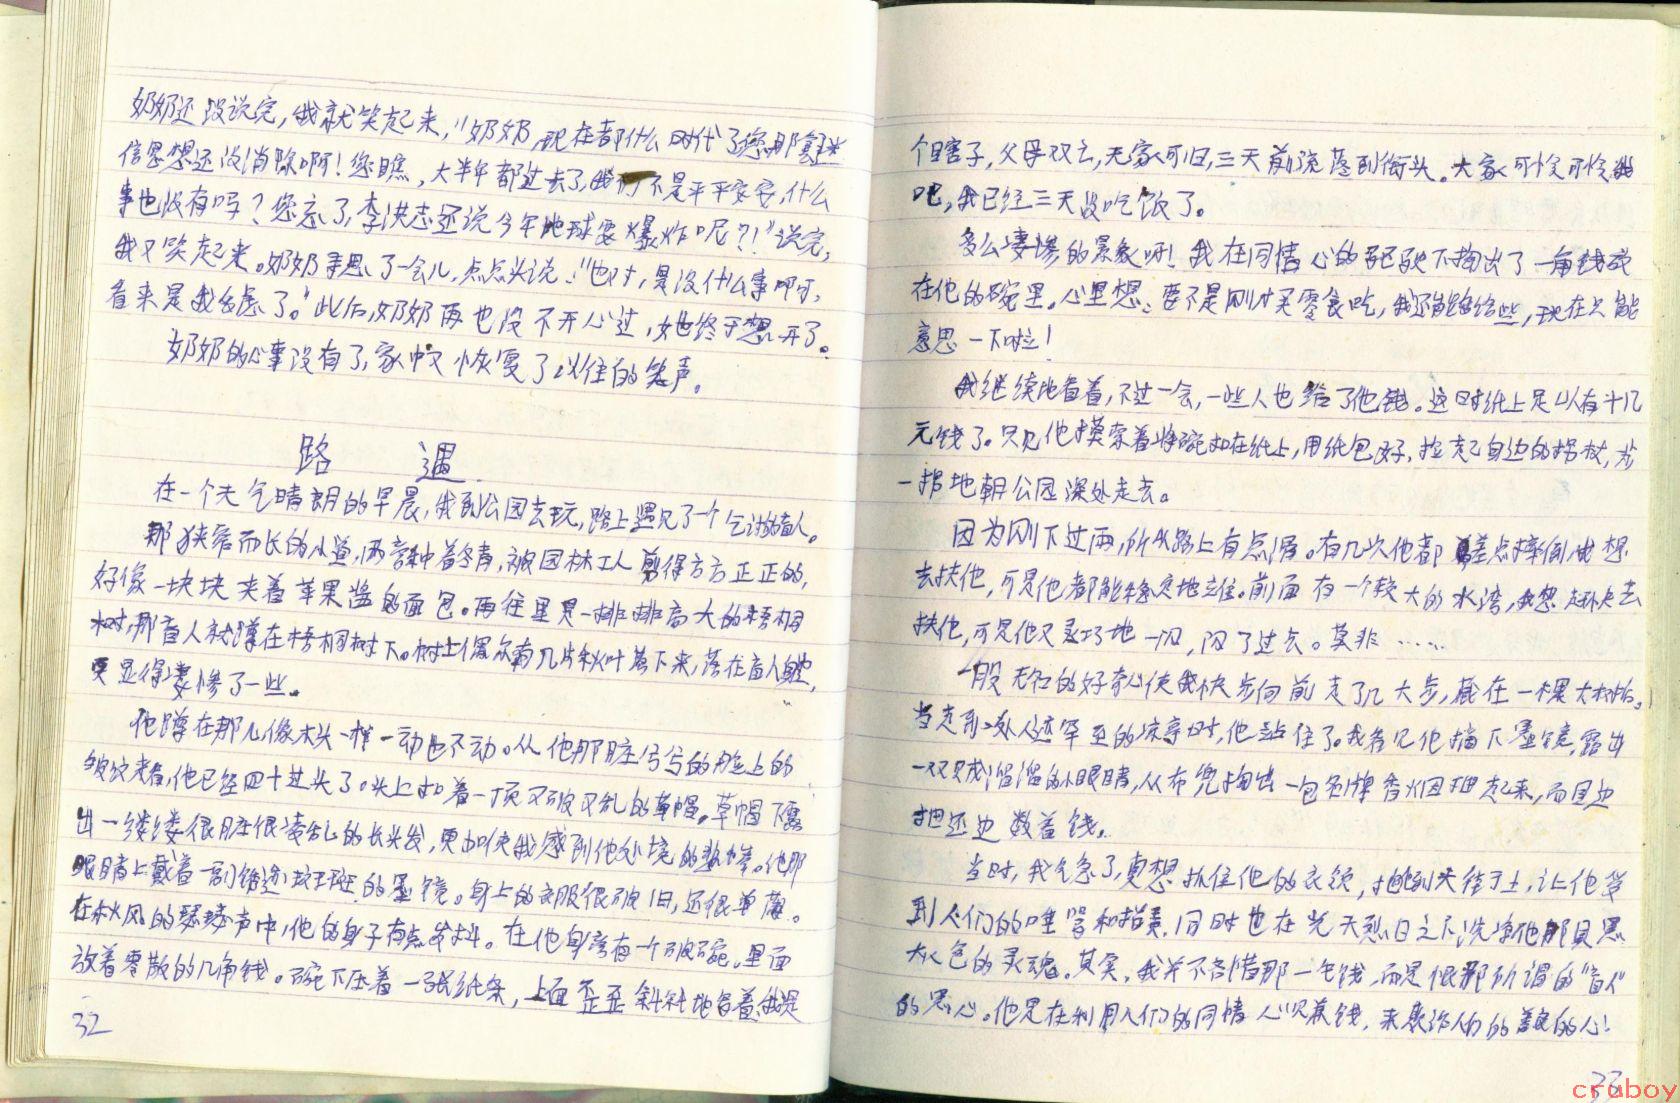 奶奶还没说完，我就笑起来，“奶奶，现在都什么时代了您那套迷
信思想还没消除啊！您瞧，大半年都过去了，我们不是平平安安，什么
事也没有吗？您忘了，李洪志还说今年地球要爆炸呢？！”说完，
我又笑起来。奶奶寻思了一会儿，点点头说：“也对，是没什么事啊，
看来是我多虑了。”此后，奶奶再也没不开心过，她终于想开了。
奶奶的心事没有了，家中又恢复了以往的笑声。
路 遇
在一个天气晴朗的早晨，我到公园去玩，路上遇见了一个乞讨的盲人。
那狭窄而长的小道，两旁种着冬青，被园林工人剪得方方正正的，
好像一块块夹着苹果酱的面包。再往里是一排排高大的梧桐
树，那盲人就蹲在梧桐树下。树上偶尔有几片秋叶落下来，落在盲人身边，
更显得凄惨了一些。
他蹲在那儿像木头一样一动也不动。从他那脏兮兮的脸上的
皱纹来看，他已经四十过头了。头上扣着一顶又破又乱的草帽。草帽下露
出一缕缕很脏很凌乱的长头发，更加使我感到他处境的悲惨。他那
眼睛上戴着一副锈迹斑斑的墨镜。身上的衣服很破旧，还很单薄。
在秋风的瑟瑟声中，他的身子有点发抖。在他身旁有一个破碗，里面
放着零散的几角钱。碗下压着一张纸条，上面歪歪斜斜地写着：我是
32
个瞎子，父母双亡，无家可归，三天前流落到街头。大家可怜可怜我
吧，我已经三天没吃饭了。
多么凄惨的景象呀！我在同情心的驱驶下掏出了一角钱放
在他的碗里。心里想：要不是刚才买零食吃，我还能多给些，现在只能
意思一下啦！
我继续地看着，不过一会，一些人也给了他钱。这时纸上足以有十几
元钱了。只见他摸索着将碗扣在纸上，用纸包好，拉起身边的拐杖，步
一拐地朝公园深处走去。
因为刚下过雨，所以路上有点滑。有几次他都差点摔倒，我想
去扶他，可是他都能稳定地站住。前面有一个较大的水湾，我想赶快去
扶他，可是他又灵巧地一闪，闪了过去。莫非……
一股无知的好奇心使我快步向前走了几大步，藏在一棵大树后。
当走到一处人迹罕至的凉亭时，他站住了。我看见他摘下墨镜，露出
一双贼溜溜的小眼睛，从布兜掏出一包名牌香烟抽起来，而且边
抽还边数着钱。
当时，我气急了，真想抓住他的衣领，拖到大街上，让他受
到人们的唾骂和指责，同时也在光天烈日之下洗净他那具黑
灰色的灵魂。其实，我并不吝惜那一毛钱，而是恨那所谓的“盲人”
的黑心。他是在利用人们的同情心来赚钱，来欺诈人们的善良的心！
33
cruboy